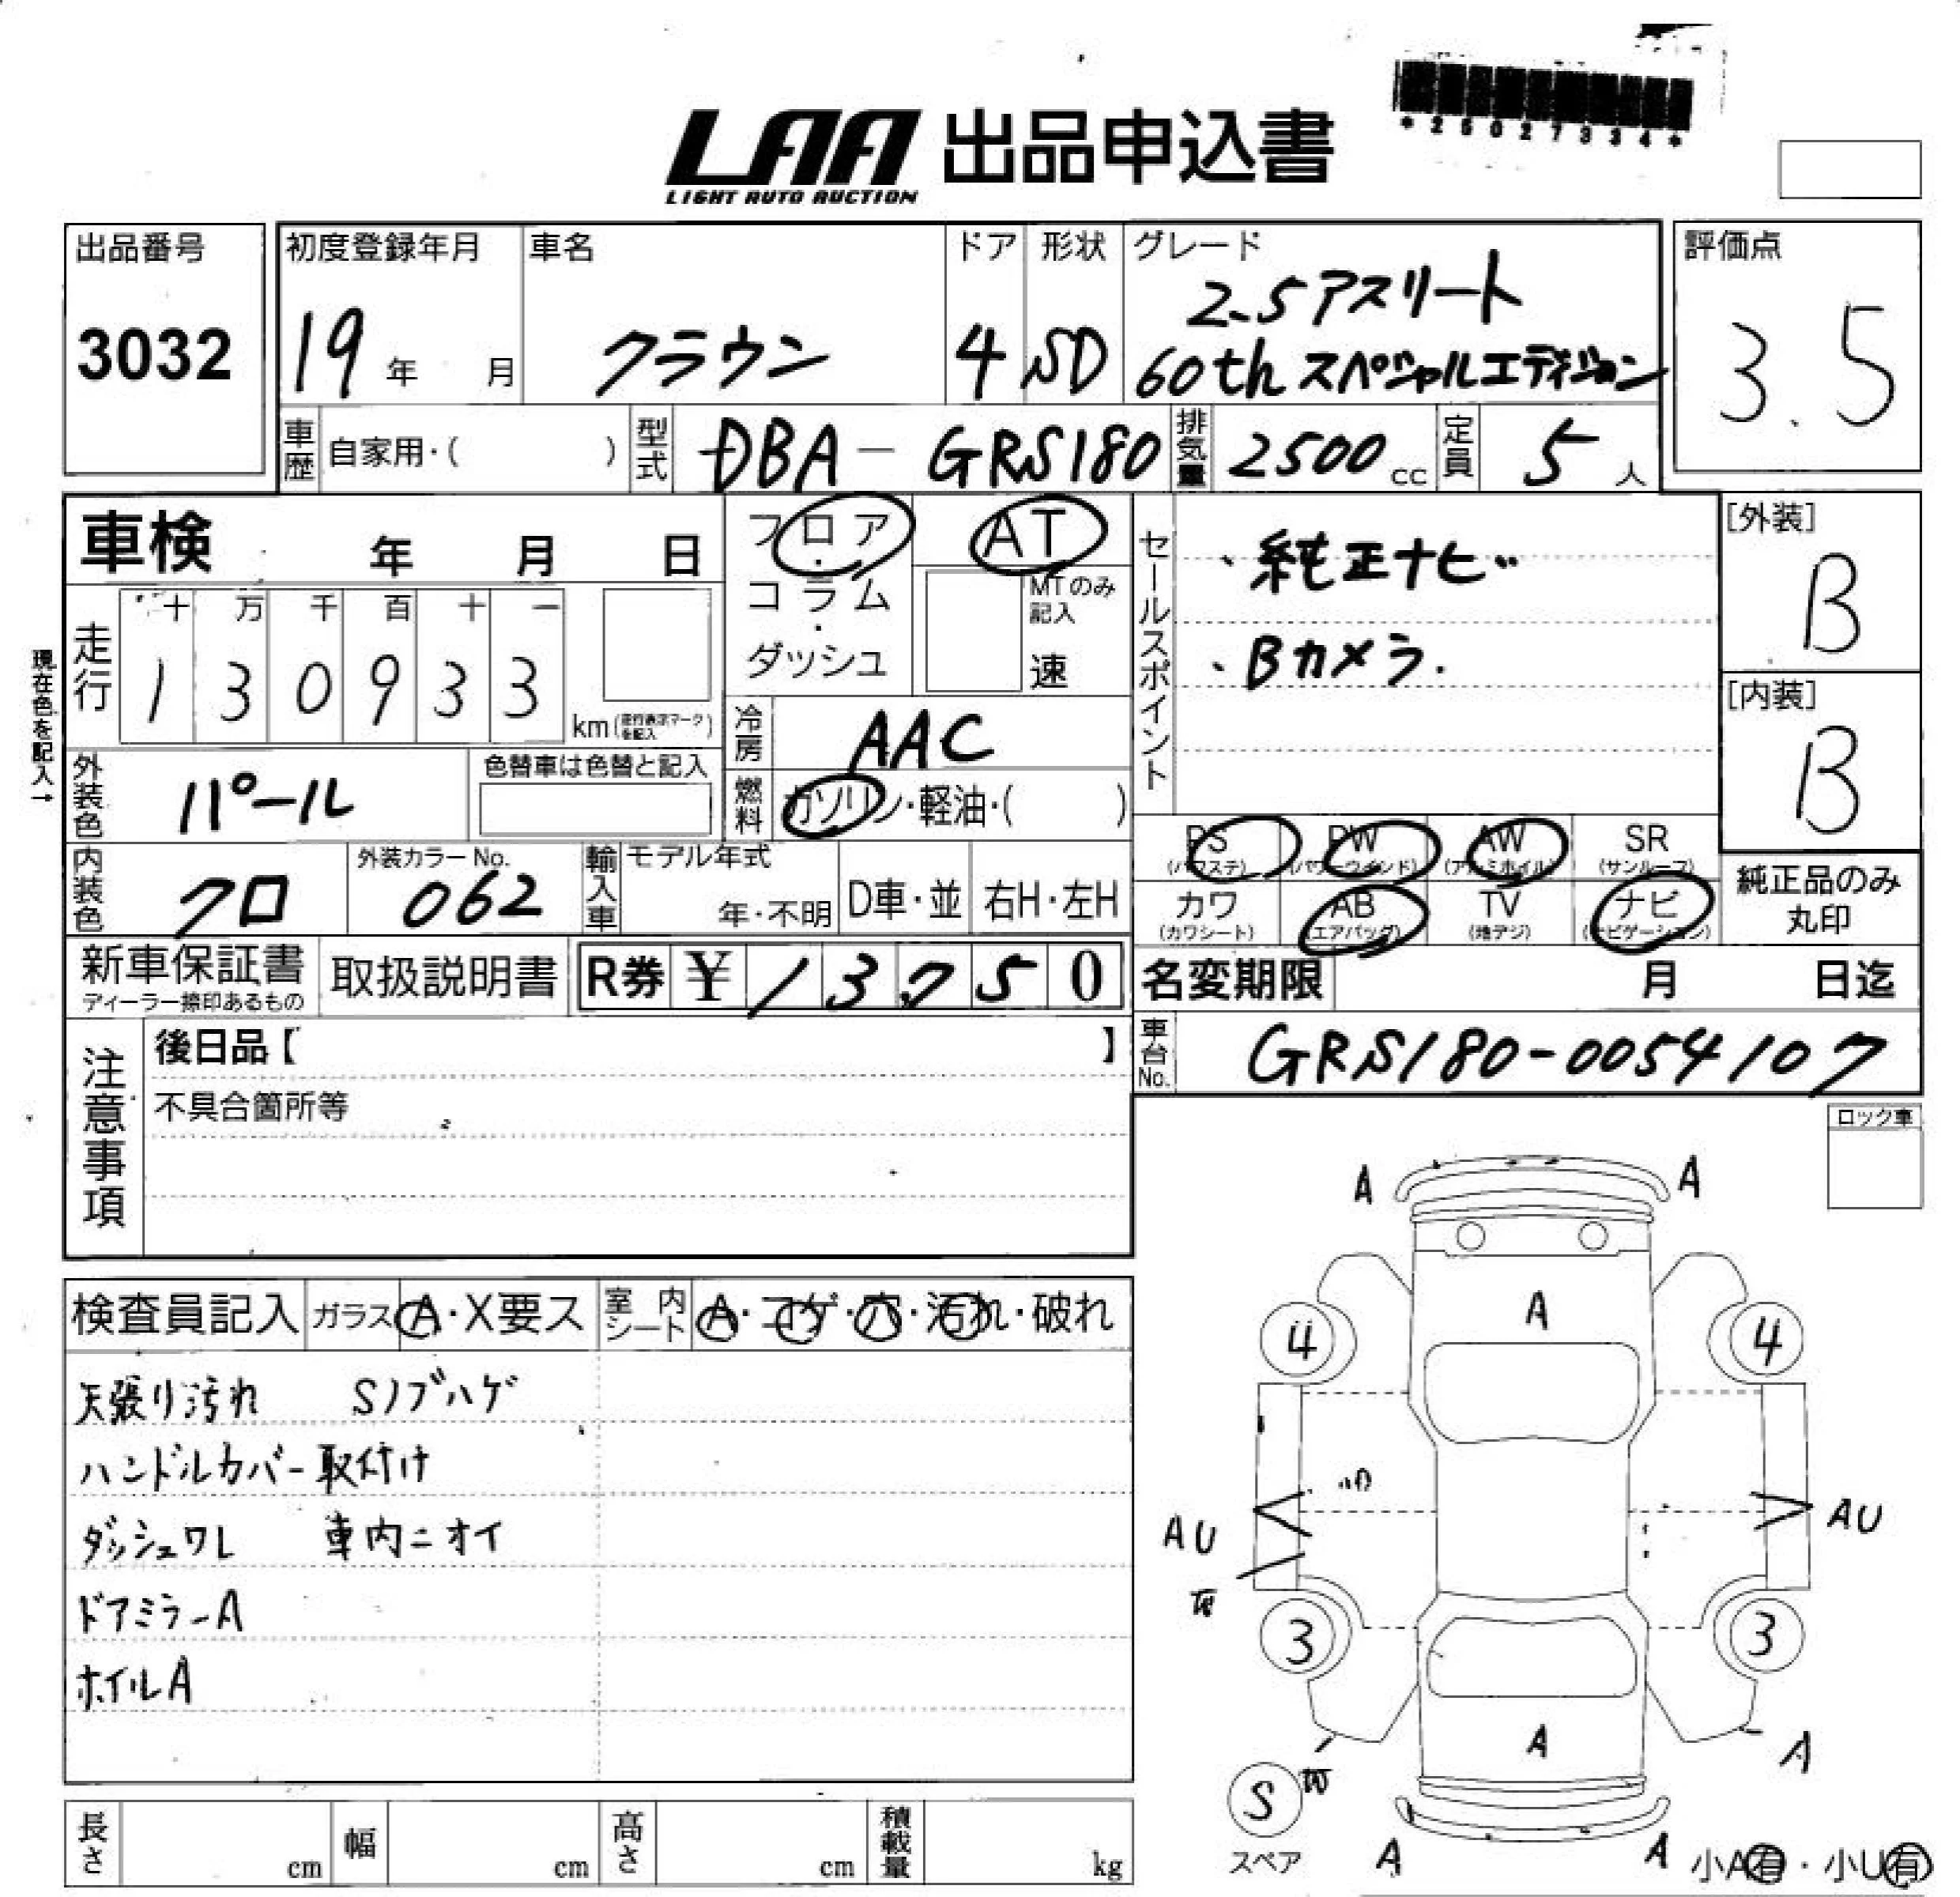 *25027334*
LAA 出品申込書
LIGHT AUTO AUCTION
出品番号
3032
初度登録年月
19年 月
車名
クラウン
ドア
4
形状
SD
グレード
2.5アスリート
60thスペシャルエディション
評価点
3.5
車歴 自家用・( )
型式 DBA-GRS180
排気量 2500cc
定員 5人
車検 年 月 日
フロア・コラム・ダッシュ
AT
MTのみ記入
速
セールスポイント
・純正ナビ
・Bカメラ.
[外装]
B
[内装]
B
現在色を記入→
走行
十 万 千 百 十 一
1 3 0 9 3 3
km(走行表示マークを記入)
冷房 AAC
外装色 パール
色替車は色替と記入
燃料 ガソリン・軽油・( )
内装色 クロ
外装カラーNo.
062
輸入車
モデル年式
年・不明
D車・並
右H・左H
PS (パワステ)
PW (パワーウインド)
AW (アルミホイル)
SR (サンルーフ)
カワ (カワシート)
AB (エアバッグ)
TV (地デジ)
ナビ (ナビゲーション)
純正品のみ丸印
新車保証書
ディーラー捺印あるもの
取扱説明書
R券 ¥ 13750
名変期限 月 日迄
車台No. GRS180-0054107
注意事項
後日品【 】
不具合箇所等
ロック車
検査員記入
ガラス A・X要ス
室内シート A・コゲ・穴・汚れ・破れ
天張り汚れ Sノブハゲ
ハンドルカバー取付け
ダッシュワレ 車内ニオイ
ドアミラーA
ホイルA
A A
A
4 4
AU AU
3 3
A
A
S
スペア
A A
小A有・小U有
長さ cm
幅 cm
高さ cm
積載量 kg